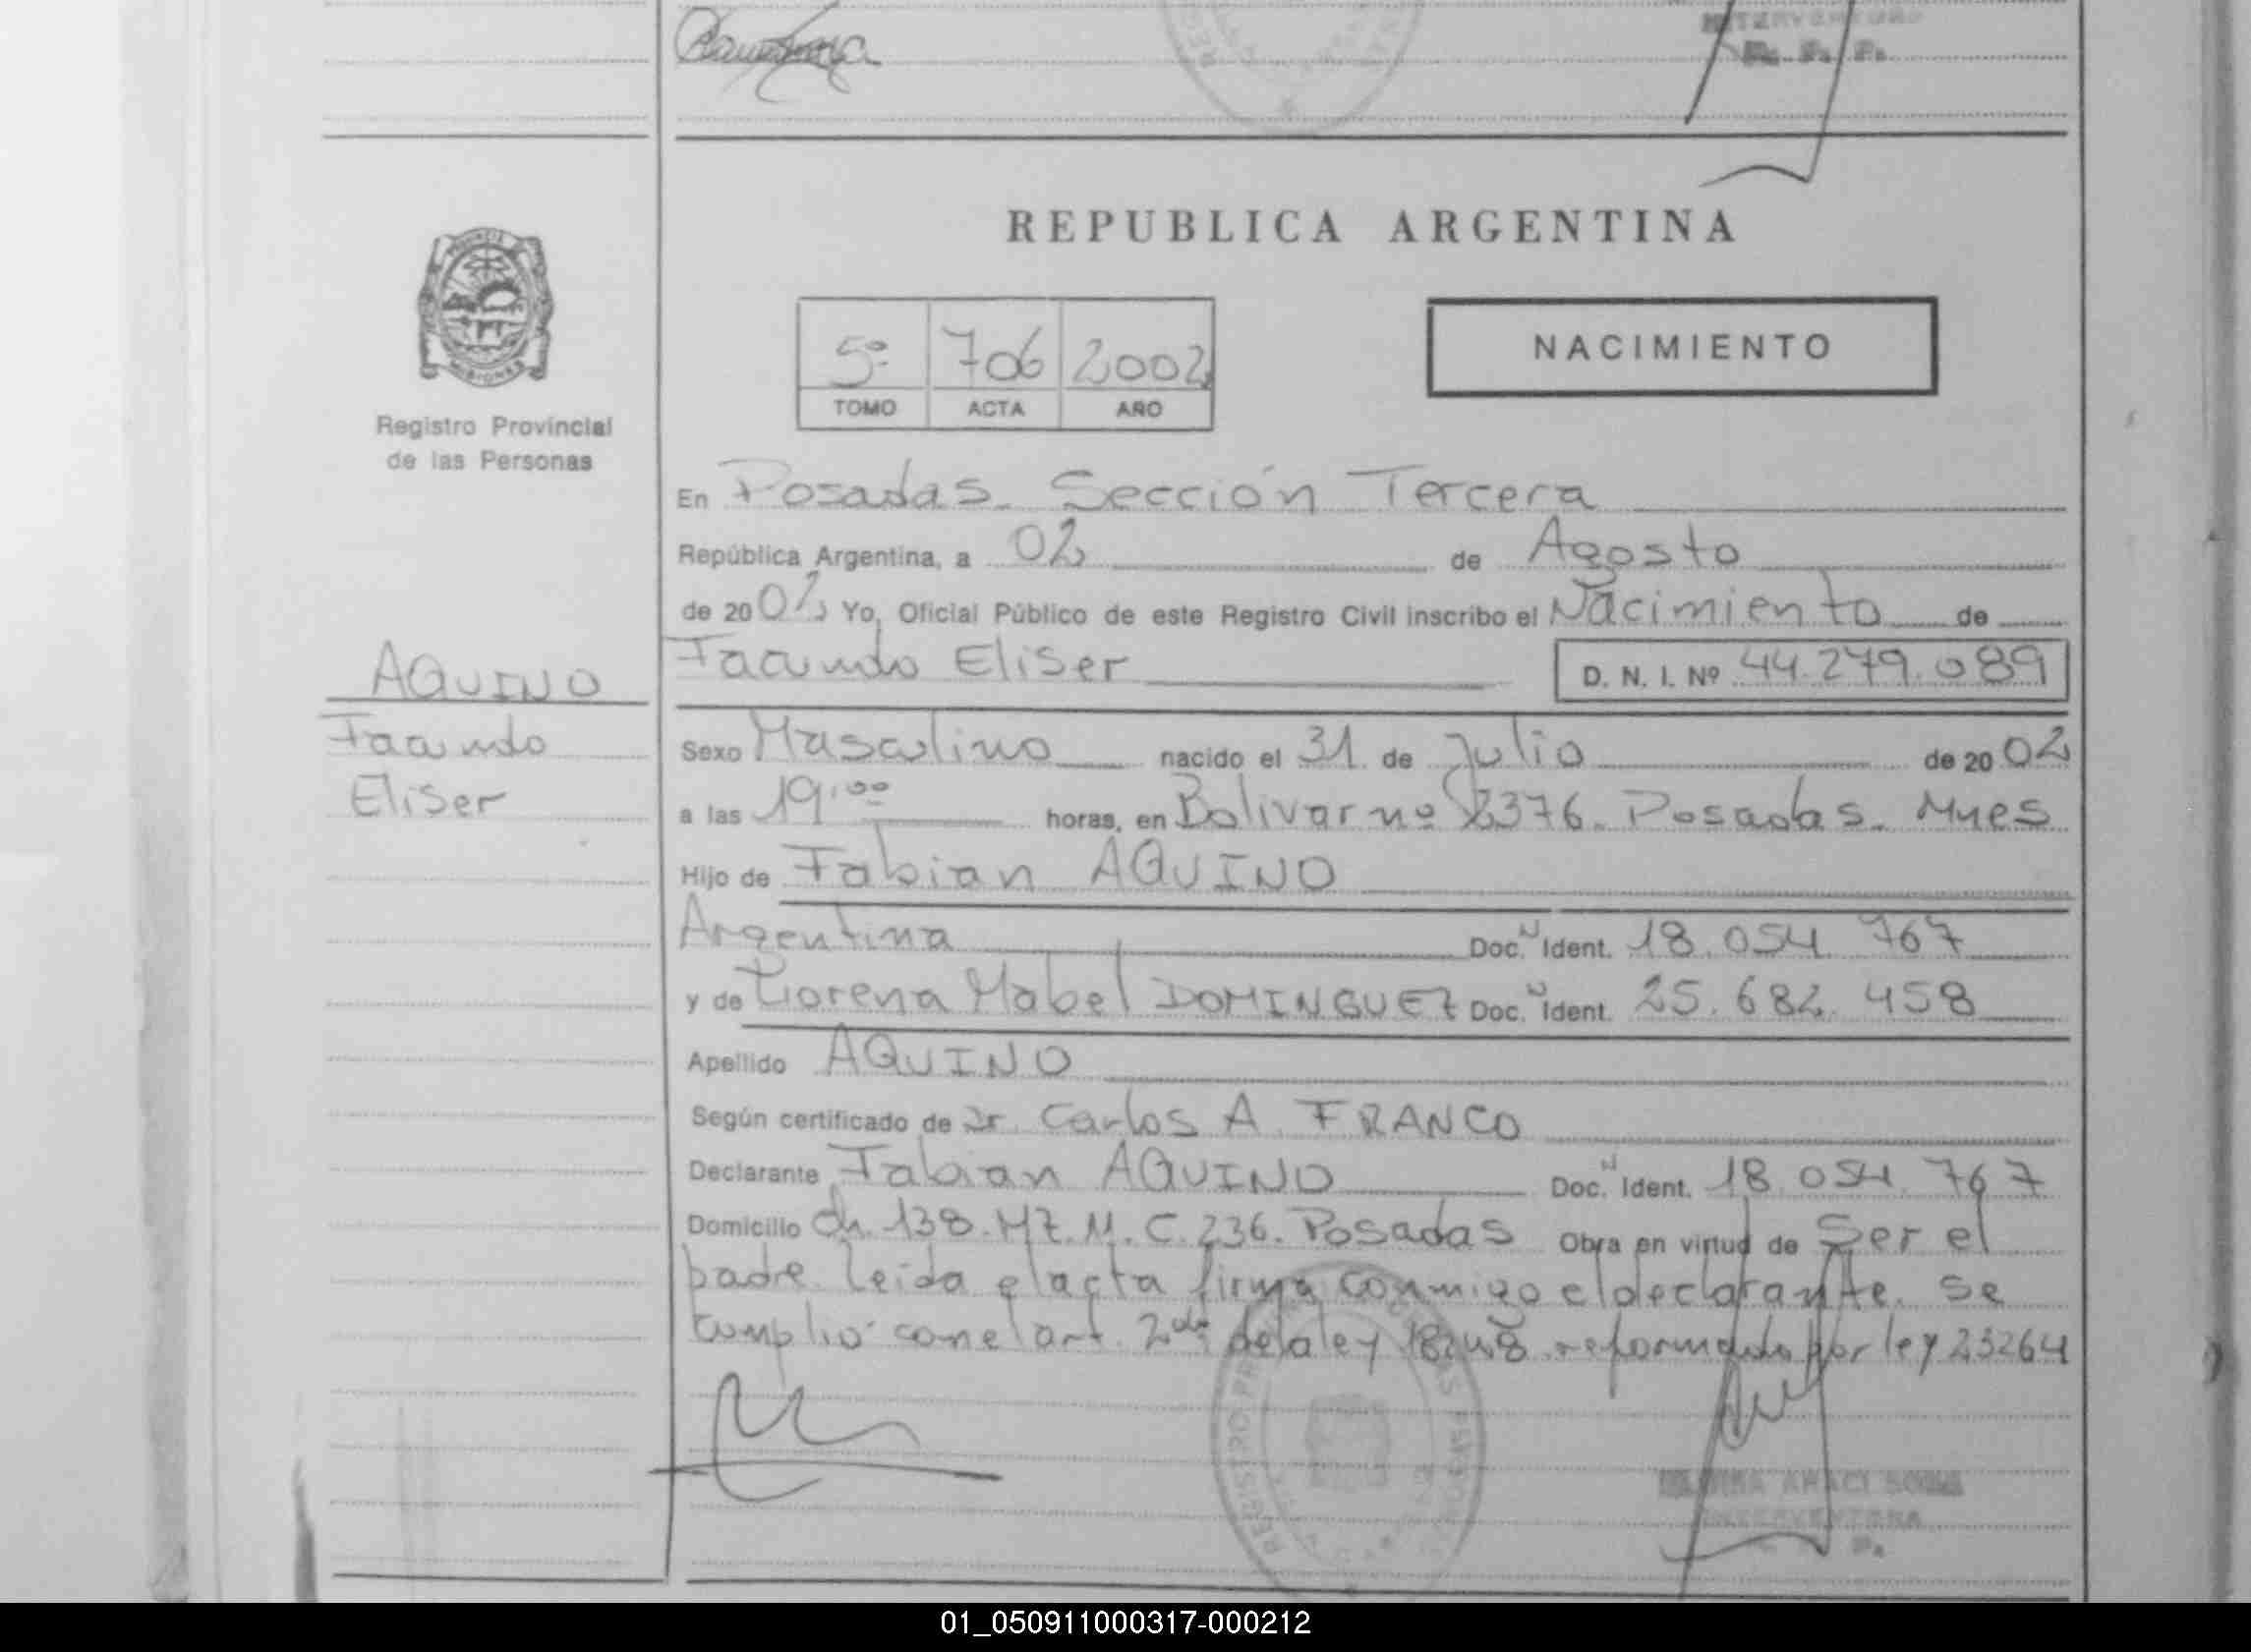 INTERVENTORA
R. P. P.
REPUBLICA ARGENTINA
PROVINCIA
MISIONES
NACIMIENTO
5º 706 2002
TOMO ACTA AÑO
Registro Provincial
de las Personas
En Posadas. Sección Tercera
República Argentina, a 02 de Agosto
de 2002 Yo, Oficial Público de este Registro Civil inscribo el Nacimiento de
AQUINO
Facundo
Eliser
Facundo Eliser D. N. I. Nº 44.279.089
Sexo Masculino nacido el 31 de Julio de 2002
a las 19,00 horas, en Bolivar nº 2376. Posadas. Mnes
Hijo de Fabian AQUINO
Argentina Doc. N Ident. 18.054.767
y de Lorena Mabel DOMINGUEZ Doc. N Ident. 25.682.458
Apellido AQUINO
Según certificado de Dr. Carlos A. FRANCO
Declarante Fabian AQUINO Doc. N Ident. 18.054.767
Domicilio Ch. 138. MZ. M. C. 236. Posadas Obra en virtud de Ser el
padre. Leida el acta firma conmigo el declarante. Se
cumplio con el art. 2do de la ley 18248 reformado por ley 23264
INTERVENTORA
01_050911000317-000212